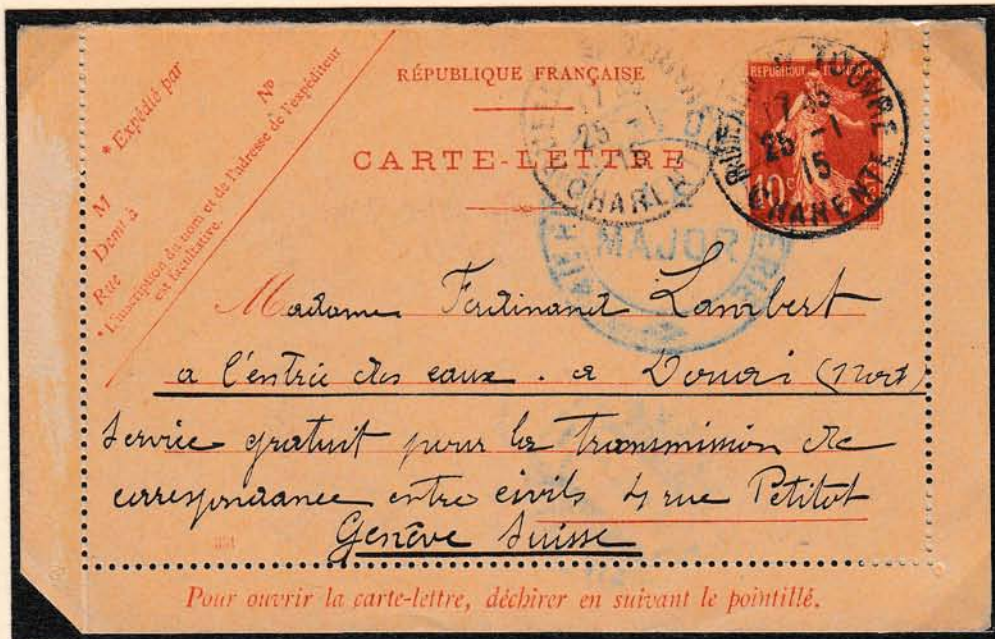 RÉPUBLIQUE FRANÇAISE
CARTE-LETTRE
* Expédié par
M
Demt à
Rue
No
* L'inscription du nom et de l'adresse de l'expéditeur
est facultative.
REPUBLIQUE FRANÇAISE
10c
TOUVRE
17 35
25 -1
15
CHARENTE
25 -1
15
CHARE
MAJOR
Madame Ferdinand Lambert
a l'entrée des eaux. a Douai (Nord)
Service gratuit pour la transmission de
correspondance entre civils 4 rue Petitot
Genève Suisse
Pour ouvrir la carte-lettre, déchirer en suivant le pointillé.